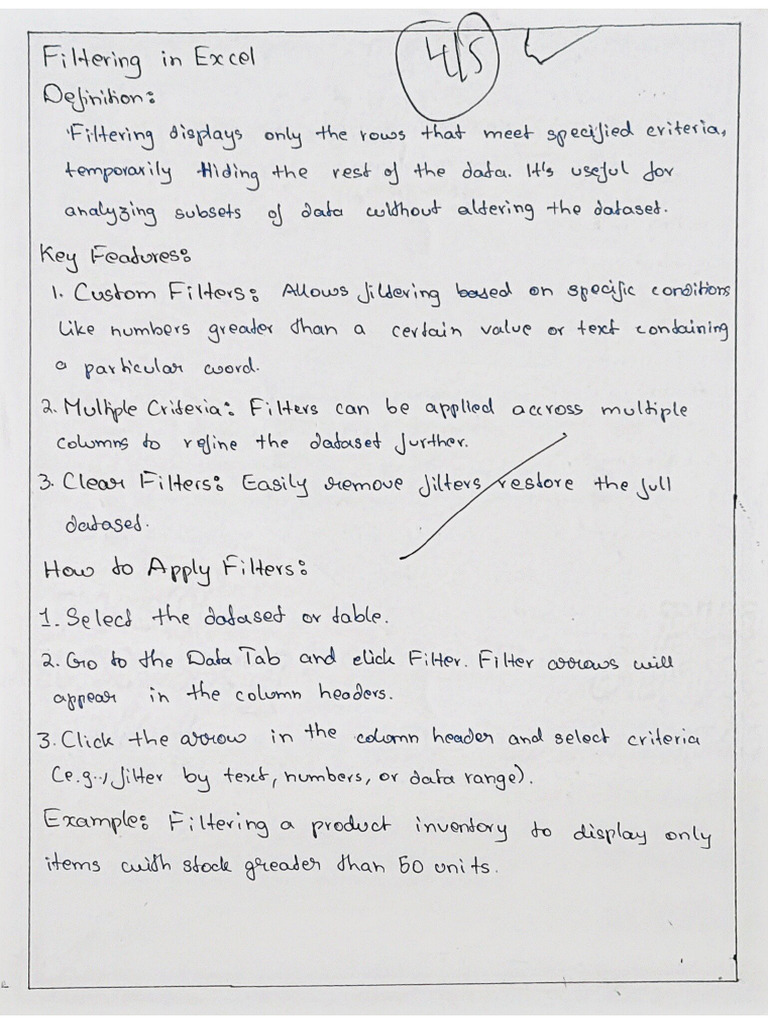 Filtering in Excel
4/5
Definition:
Filtering displays only the rows that meet specified criteria,
temporarily Hiding the rest of the data. It's useful for
analyzing subsets of data without altering the dataset.
Key Features:
1. Custom Filters: Allows filtering based on specific conditions
like numbers greater than a certain value or text containing
a particular word.
2. Multiple Criteria: Filters can be applied accross multiple
columns to refine the dataset further.
3. Clear Filters: Easily remove filters restore the full
dataset.
How to Apply Filters:
1. Select the dataset or table.
2. Go to the Data Tab and click Filter. Filter arrows will
appear in the column headers.
3. Click the arrow in the column header and select criteria
(e.g., filter by text, numbers, or data range).
Example: Filtering a product inventory to display only
items with stock greater than 50 units.